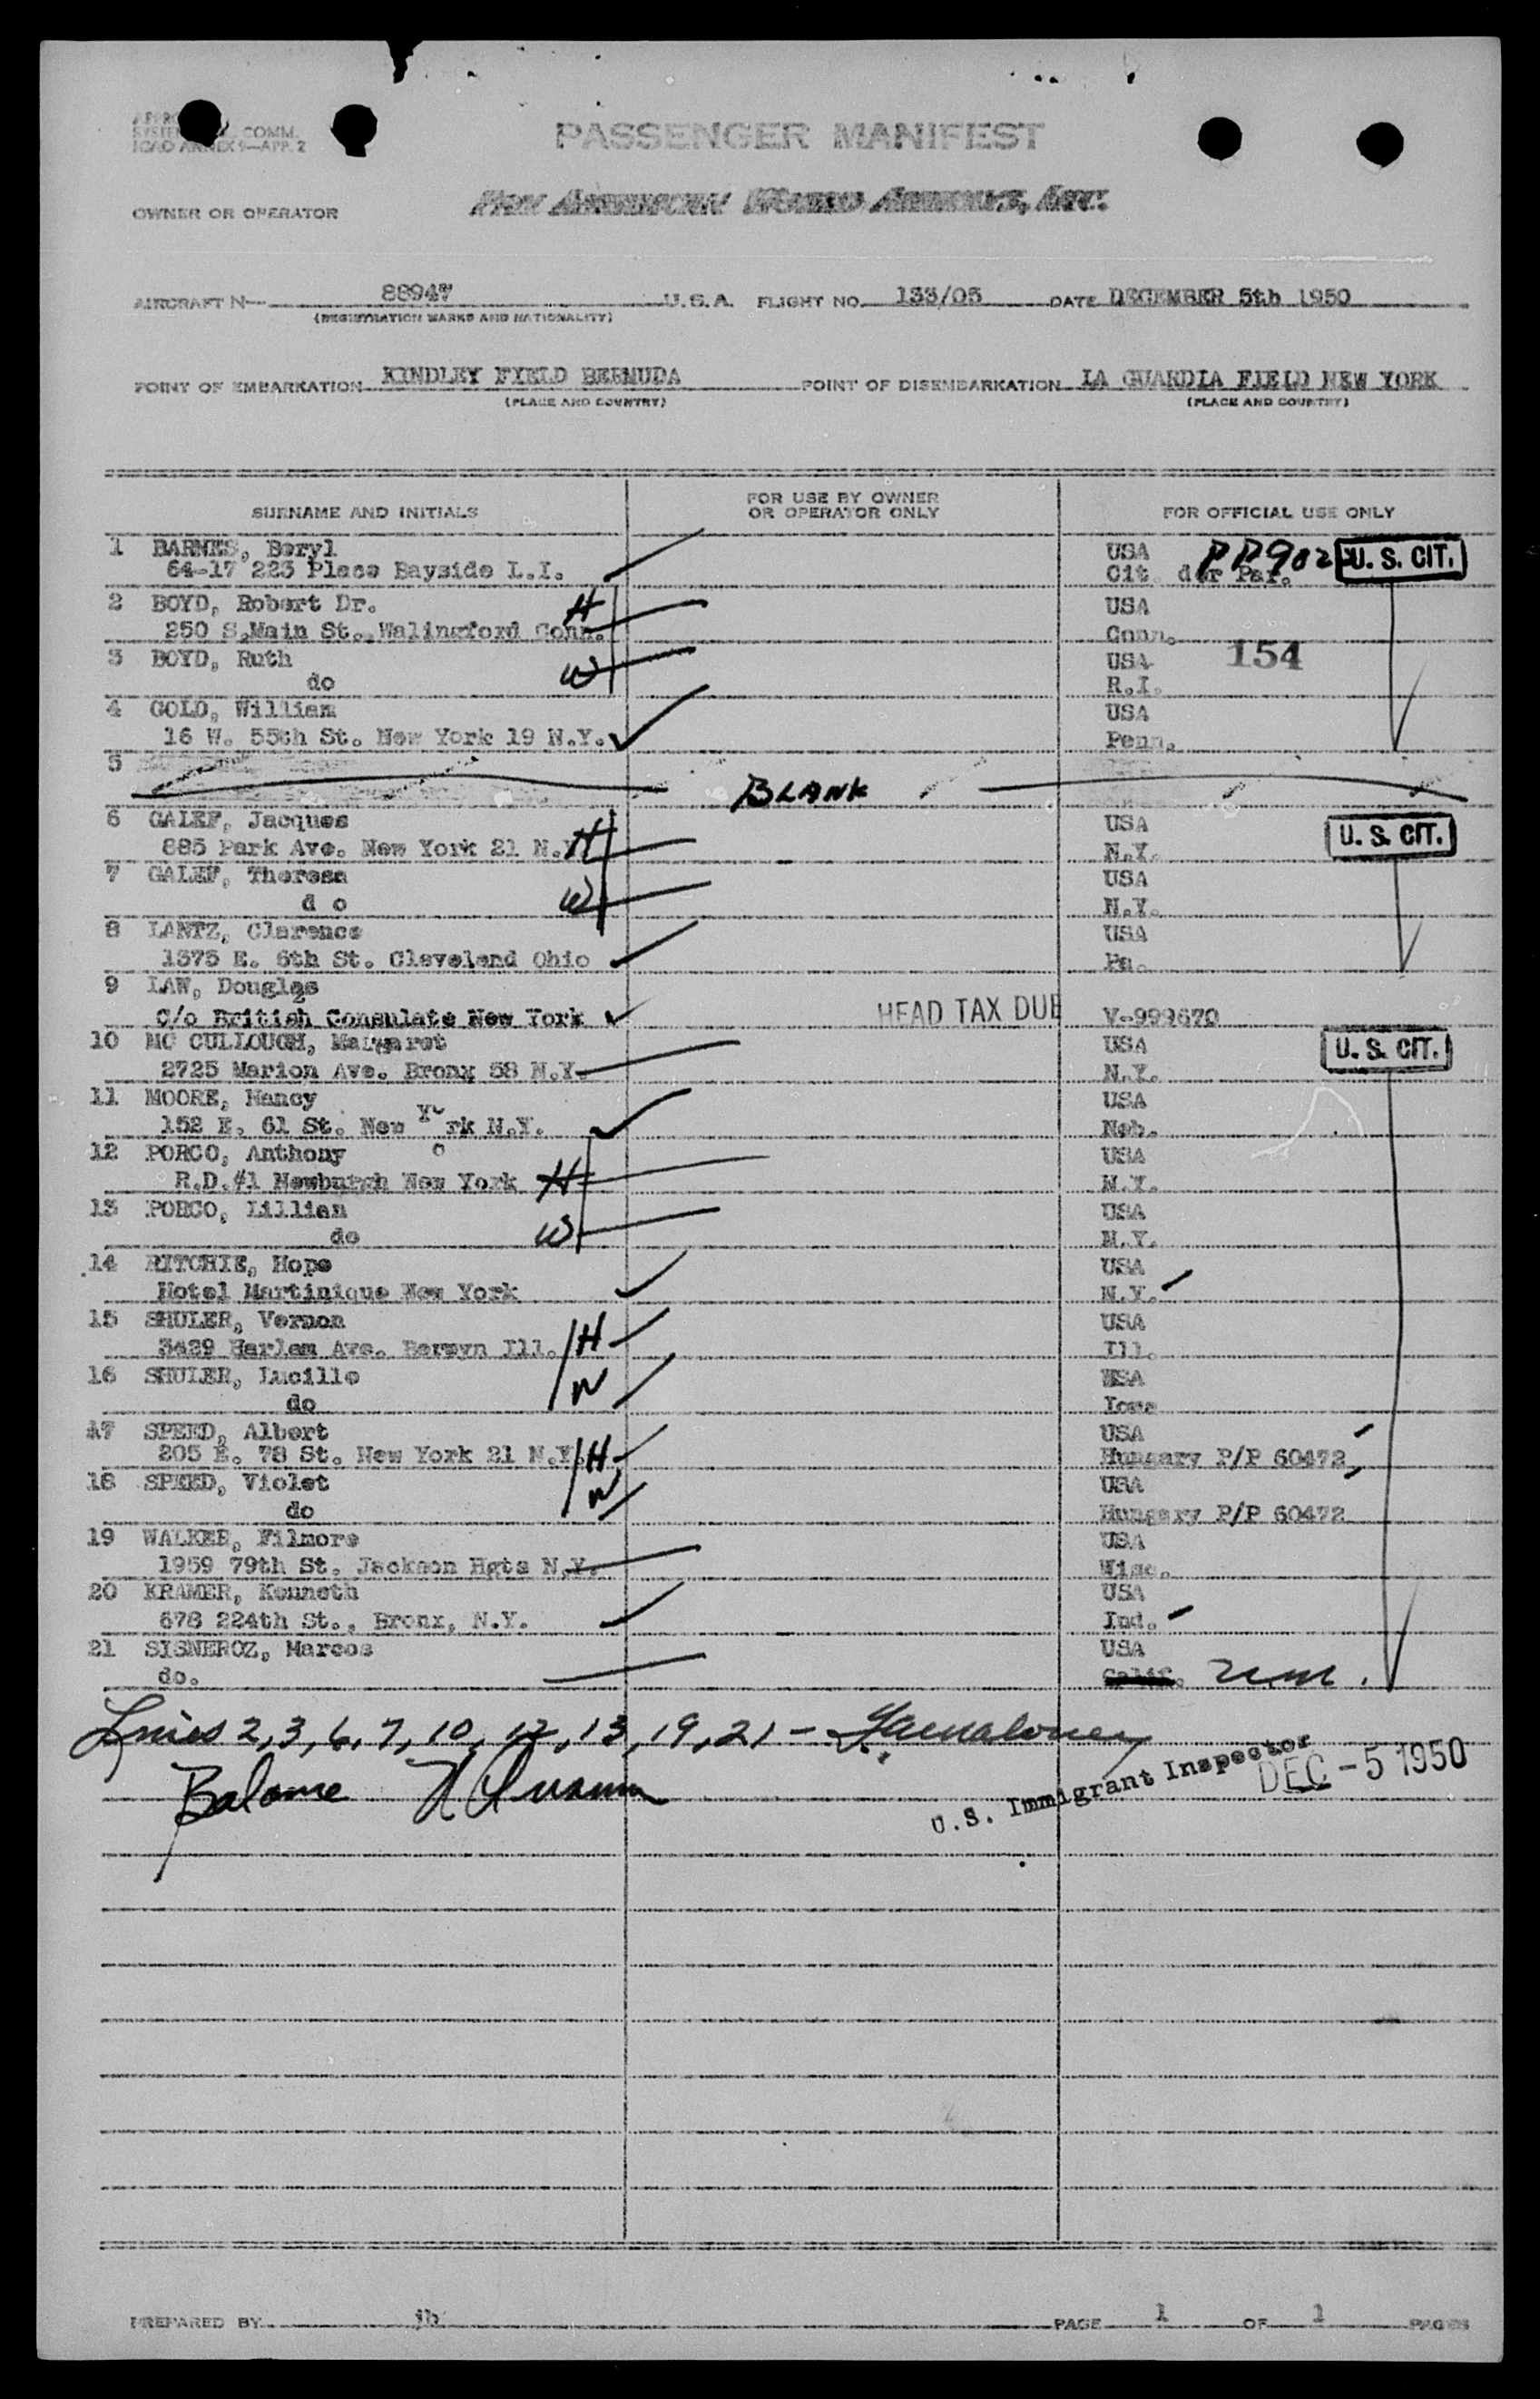 COMM.
ICAO ANNEX 9—APP. 2
PASSENGER MANIFEST
OWNER OR OPERATOR
PAN AMERICAN WORLD AIRWAYS, INC.
AIRCRAFT N— 88947 U.S.A. FLIGHT NO. 133/05 DATE DECEMBER 5th 1950
(REGISTRATION MARKS AND NATIONALITY)
POINT OF EMBARKATION KINDLEY FIELD BERMUDA POINT OF DISEMBARKATION LA GUARDIA FIELD NEW YORK
(PLACE AND COUNTRY) (PLACE AND COUNTRY)
SURNAME AND INITIALS FOR USE BY OWNER OR OPERATOR ONLY FOR OFFICIAL USE ONLY
1 BARNES, Beryl USA U. S. CIT.
64-17 223 Place Bayside L.I. Cit. der Par.
2 BOYD, Robert Dr. H USA
250 S.Main St. Walingford Conn. Conn.
154
3 BOYD, Ruth USA
do W R.I.
4 GOLD, William USA
16 W. 55th St. New York 19 N.Y. Penn.
5
BLANK
6 GALEF, Jacques H USA U. S. CIT.
885 Park Ave. New York 21 N.Y. N.Y.
7 GALEF, Theresa USA
d o W N.Y.
8 LANTZ, Clarence USA
1375 E. 6th St. Cleveland Ohio Pa.
9 LAW, Douglas
C/o British Consulate New York HEAD TAX DUE V-999670
10 MC CULLOUGH, Margaret USA U. S. CIT.
2725 Marion Ave. Bronx 58 N.Y. N.Y.
11 MOORE, Nancy USA
152 E. 61 St. New York N.Y. Neb.
12 PORCO, Anthony USA
R.D.#1 Newburgh New York H N.Y.
13 PORCO, Lillian USA
do W N.Y.
14 RITCHIE, Hope USA
Hotel Martinique New York N.Y.
15 SHULER, Vernon H USA
3429 Harlem Ave. Berwyn Ill. Ill.
16 SHULER, Lucille W USA
do Iowa
17 SPEED, Albert USA
205 E. 78 St. New York 21 N.Y. H Hungary P/P 60472
18 SPEED, Violet W USA
do Hungary P/P 60472
19 WALKER, Filmore USA
1959 79th St. Jackson Hgts N.Y. Wisc.
20 KRAMER, Kenneth USA
678 224th St., Bronx, N.Y. Ind.
21 SISNEROZ, Marcos USA
do. Calif.
Lines 2,3,6,7,10,12,13,19,21 –
U.S. Immigrant Inspector
DEC -5 1950
Balance
PREPARED BY jb PAGE 1 OF 1 PAGES